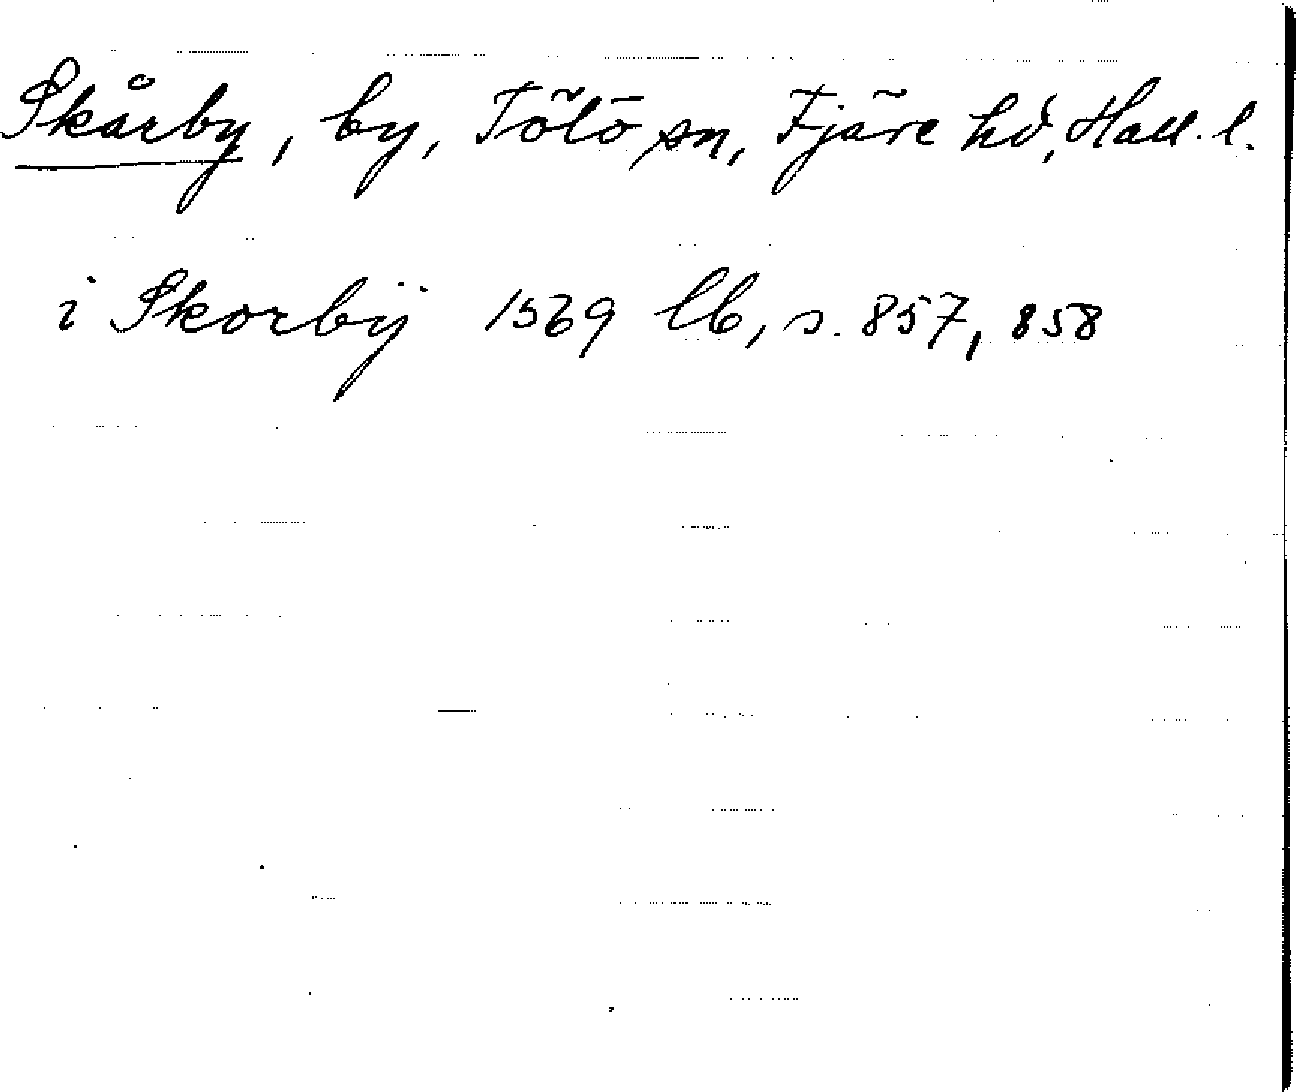 Skårby, by, Tölö sn, Fjäre hd, Hall. l.
i Skorbÿ 1569 lb, s. 857, 858